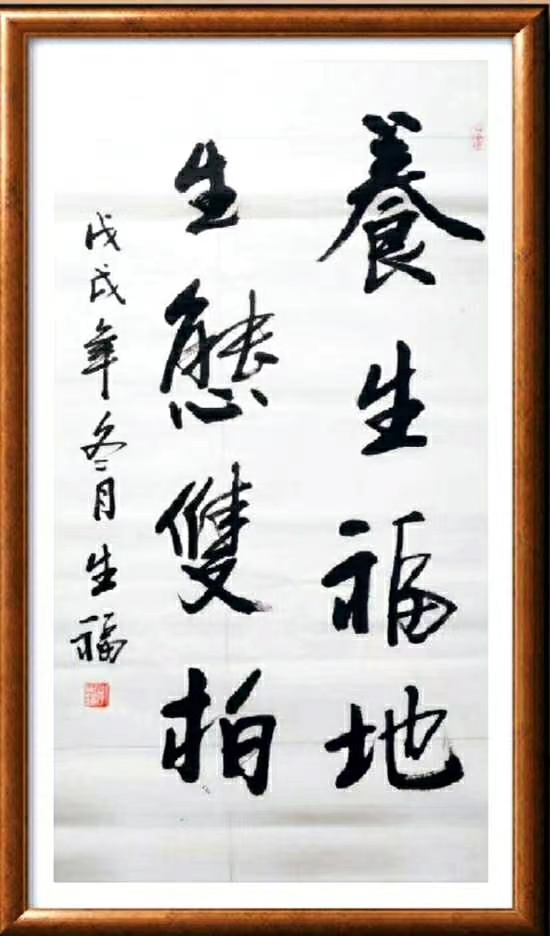 養生福地
生態雙柏
戊戌年冬月生福